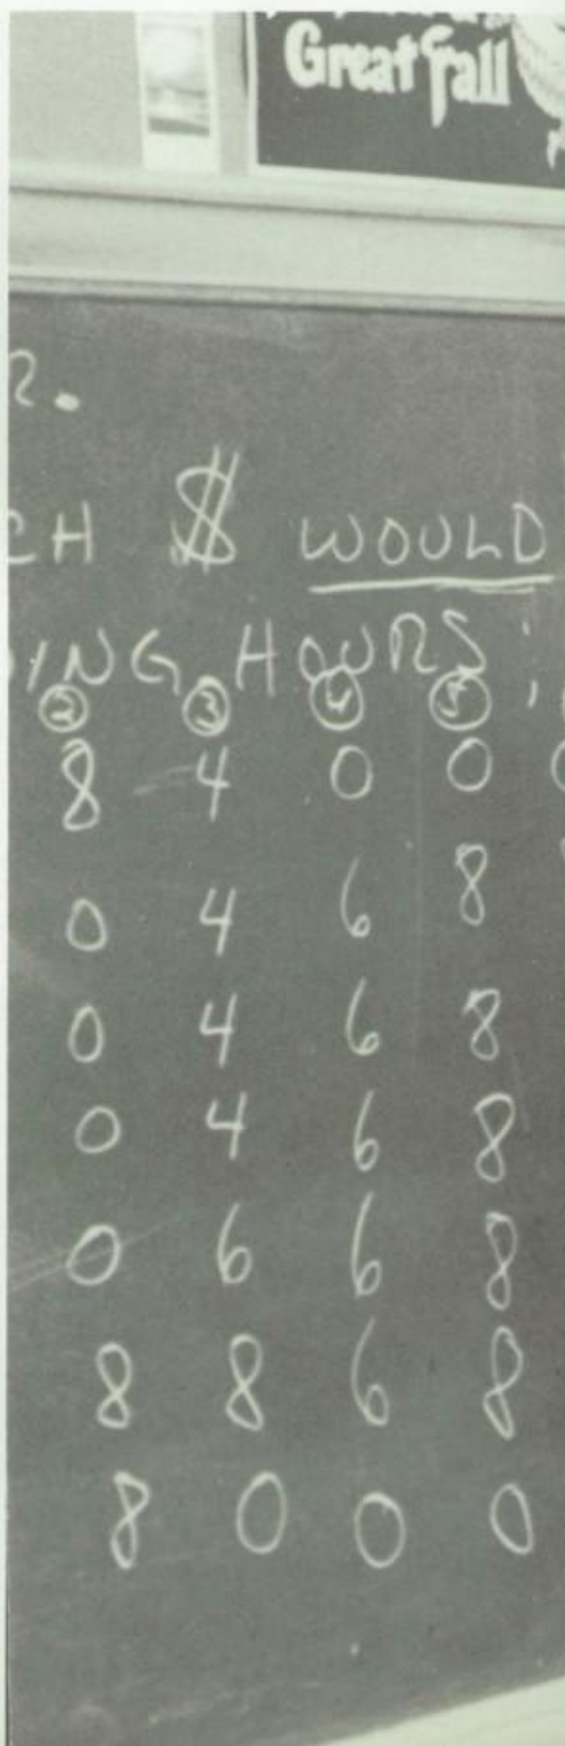 Great Fall
2.
CH $ WOULD
ING HOURS:
② ③ ④ ⑤
8 4 0 0
0 4 6 8
0 4 6 8
0 4 6 8
0 6 6 8
8 8 6 8
8 0 0 0